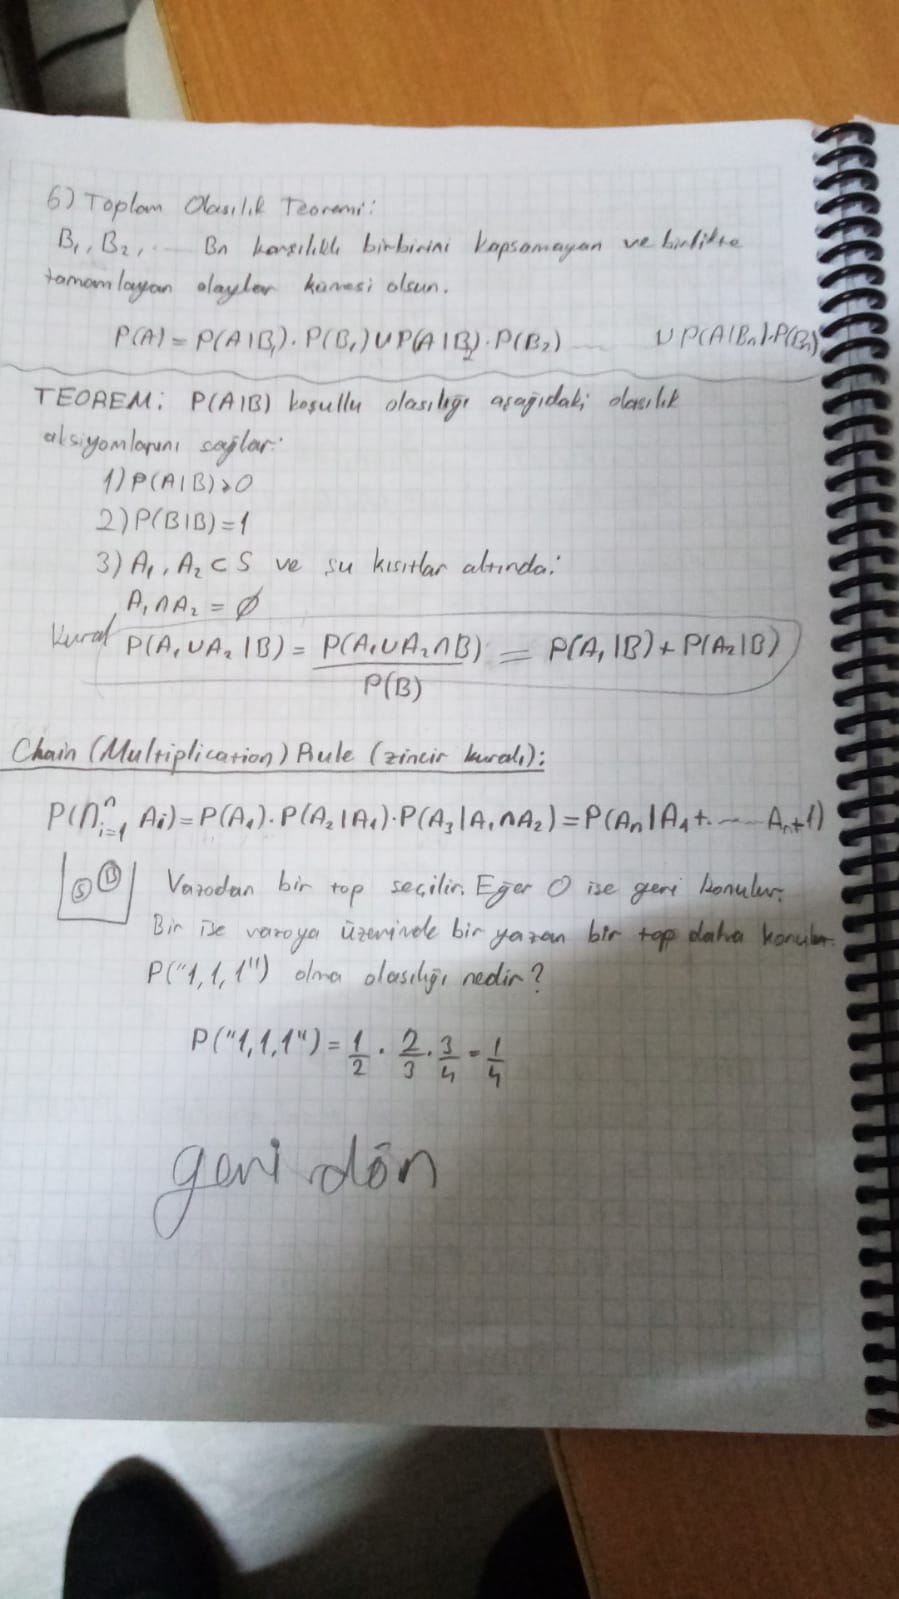 6) Toplam Olasılık Teoremi:
B₁, B₂, ... Bn karşılıklı birbirini kapsamayan ve birlikte
tamamlayan olaylar kümesi olsun.
P(A) = P(A|B₁).P(B₁) ∪ P(A|B₂).P(B₂) ... ∪ P(A|Bn).P(Bn)
TEOREM: P(A|B) koşullu olasılığı aşağıdaki olasılık
aksiyomlarını sağlar:
1) P(A|B)≥0
2) P(B|B)=1
3) A₁, A₂ ⊂ S ve şu kısıtlar altında:
A₁∩A₂ = ∅
Kural P(A₁∪A₂|B) = P(A₁∪A₂∩B) / P(B) = P(A₁|B) + P(A₂|B)
Chain (Multiplication) Rule (zincir kuralı):
P(∩ⁿᵢ₌₁ Aᵢ) = P(A₁).P(A₂|A₁).P(A₃|A₁∩A₂) = P(An|A₁+.... An+1)
Vazodan bir top seçilir. Eğer 0 ise geri konulur.
Bir ise vazoya üzerinde bir yazan bir top daha konulur.
P("1,1,1") olma olasılığı nedir?
P("1,1,1") = 1/2 . 2/3 . 3/4 = 1/4
geri dön